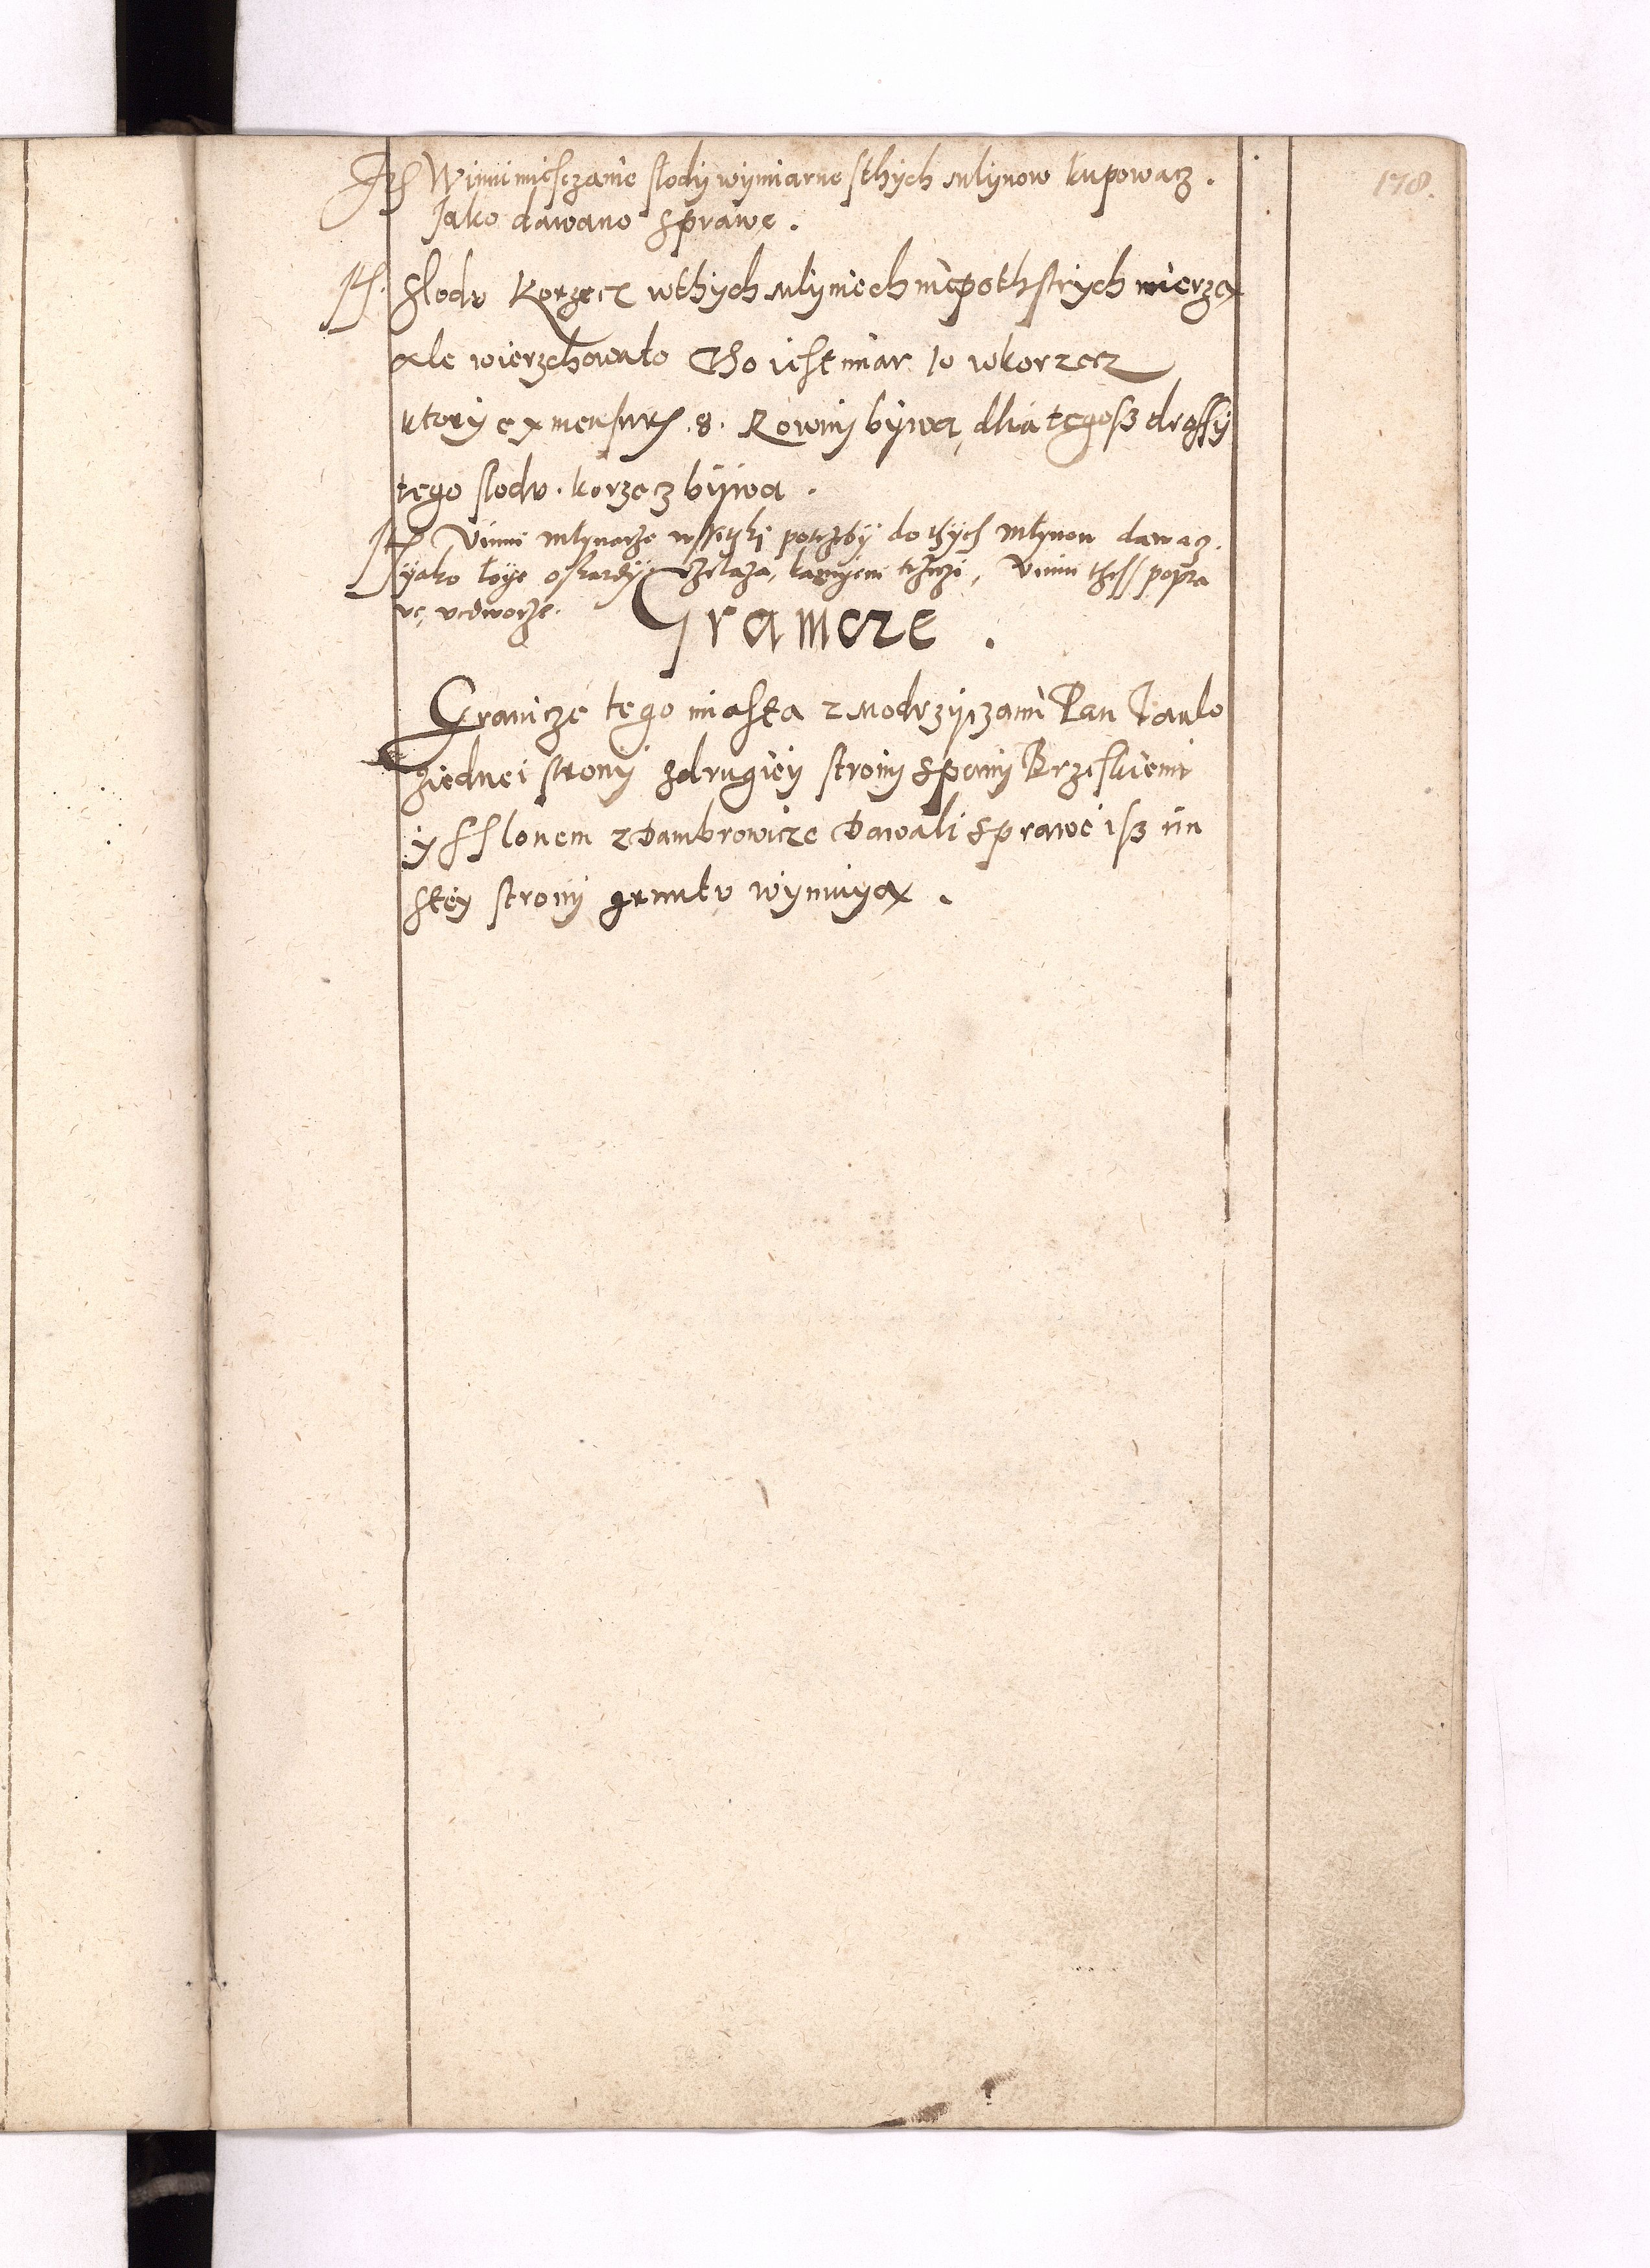 178.
Winni miesczanie slody wymiarne sthych mlynow kupowacz.
Jako dawano sprawe.
Slodu Korzecz wthych mlyniech nie poth strych mierzą
ale wierzchowato Tho iest miar 10 wkorzecz
ktory ex mensuris .8. Rowny bywa, dlia tegosz drossy
tego slodu. korzecz bywa.
Vinni mlynarze wssytki potrzeby do thych mlynow dawacz.
yako loye oskardy zelaza, kamyeni
Vinni thess popra
ve, vedworze.
Granicze.
Granicze tego miasta z Modrzyczami Pan Jaulo
ziednei strony zdrugiey strony spany Brzeskiemi
y Sslonem z Dambrowicze Dawali sprawe isz im
stey strony gruntu wymuyą.